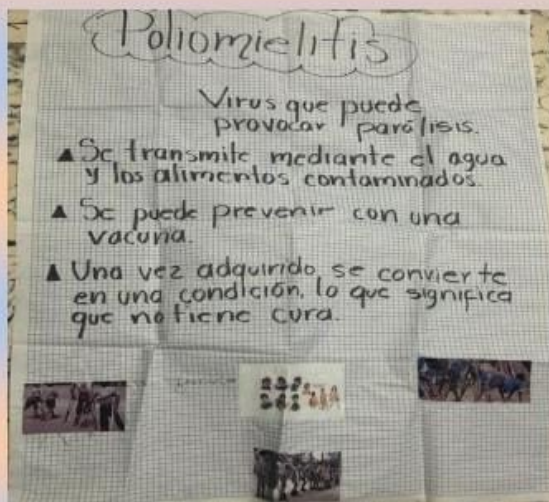 Poliomielitis
Virus que puede
provocar parálisis.
▲ Se transmite mediante el agua
y los alimentos contaminados.
▲ Se puede prevenir con una
vacuna.
▲ Una vez adquirido, se convierte
en una condición, lo que significa
que no tiene cura.